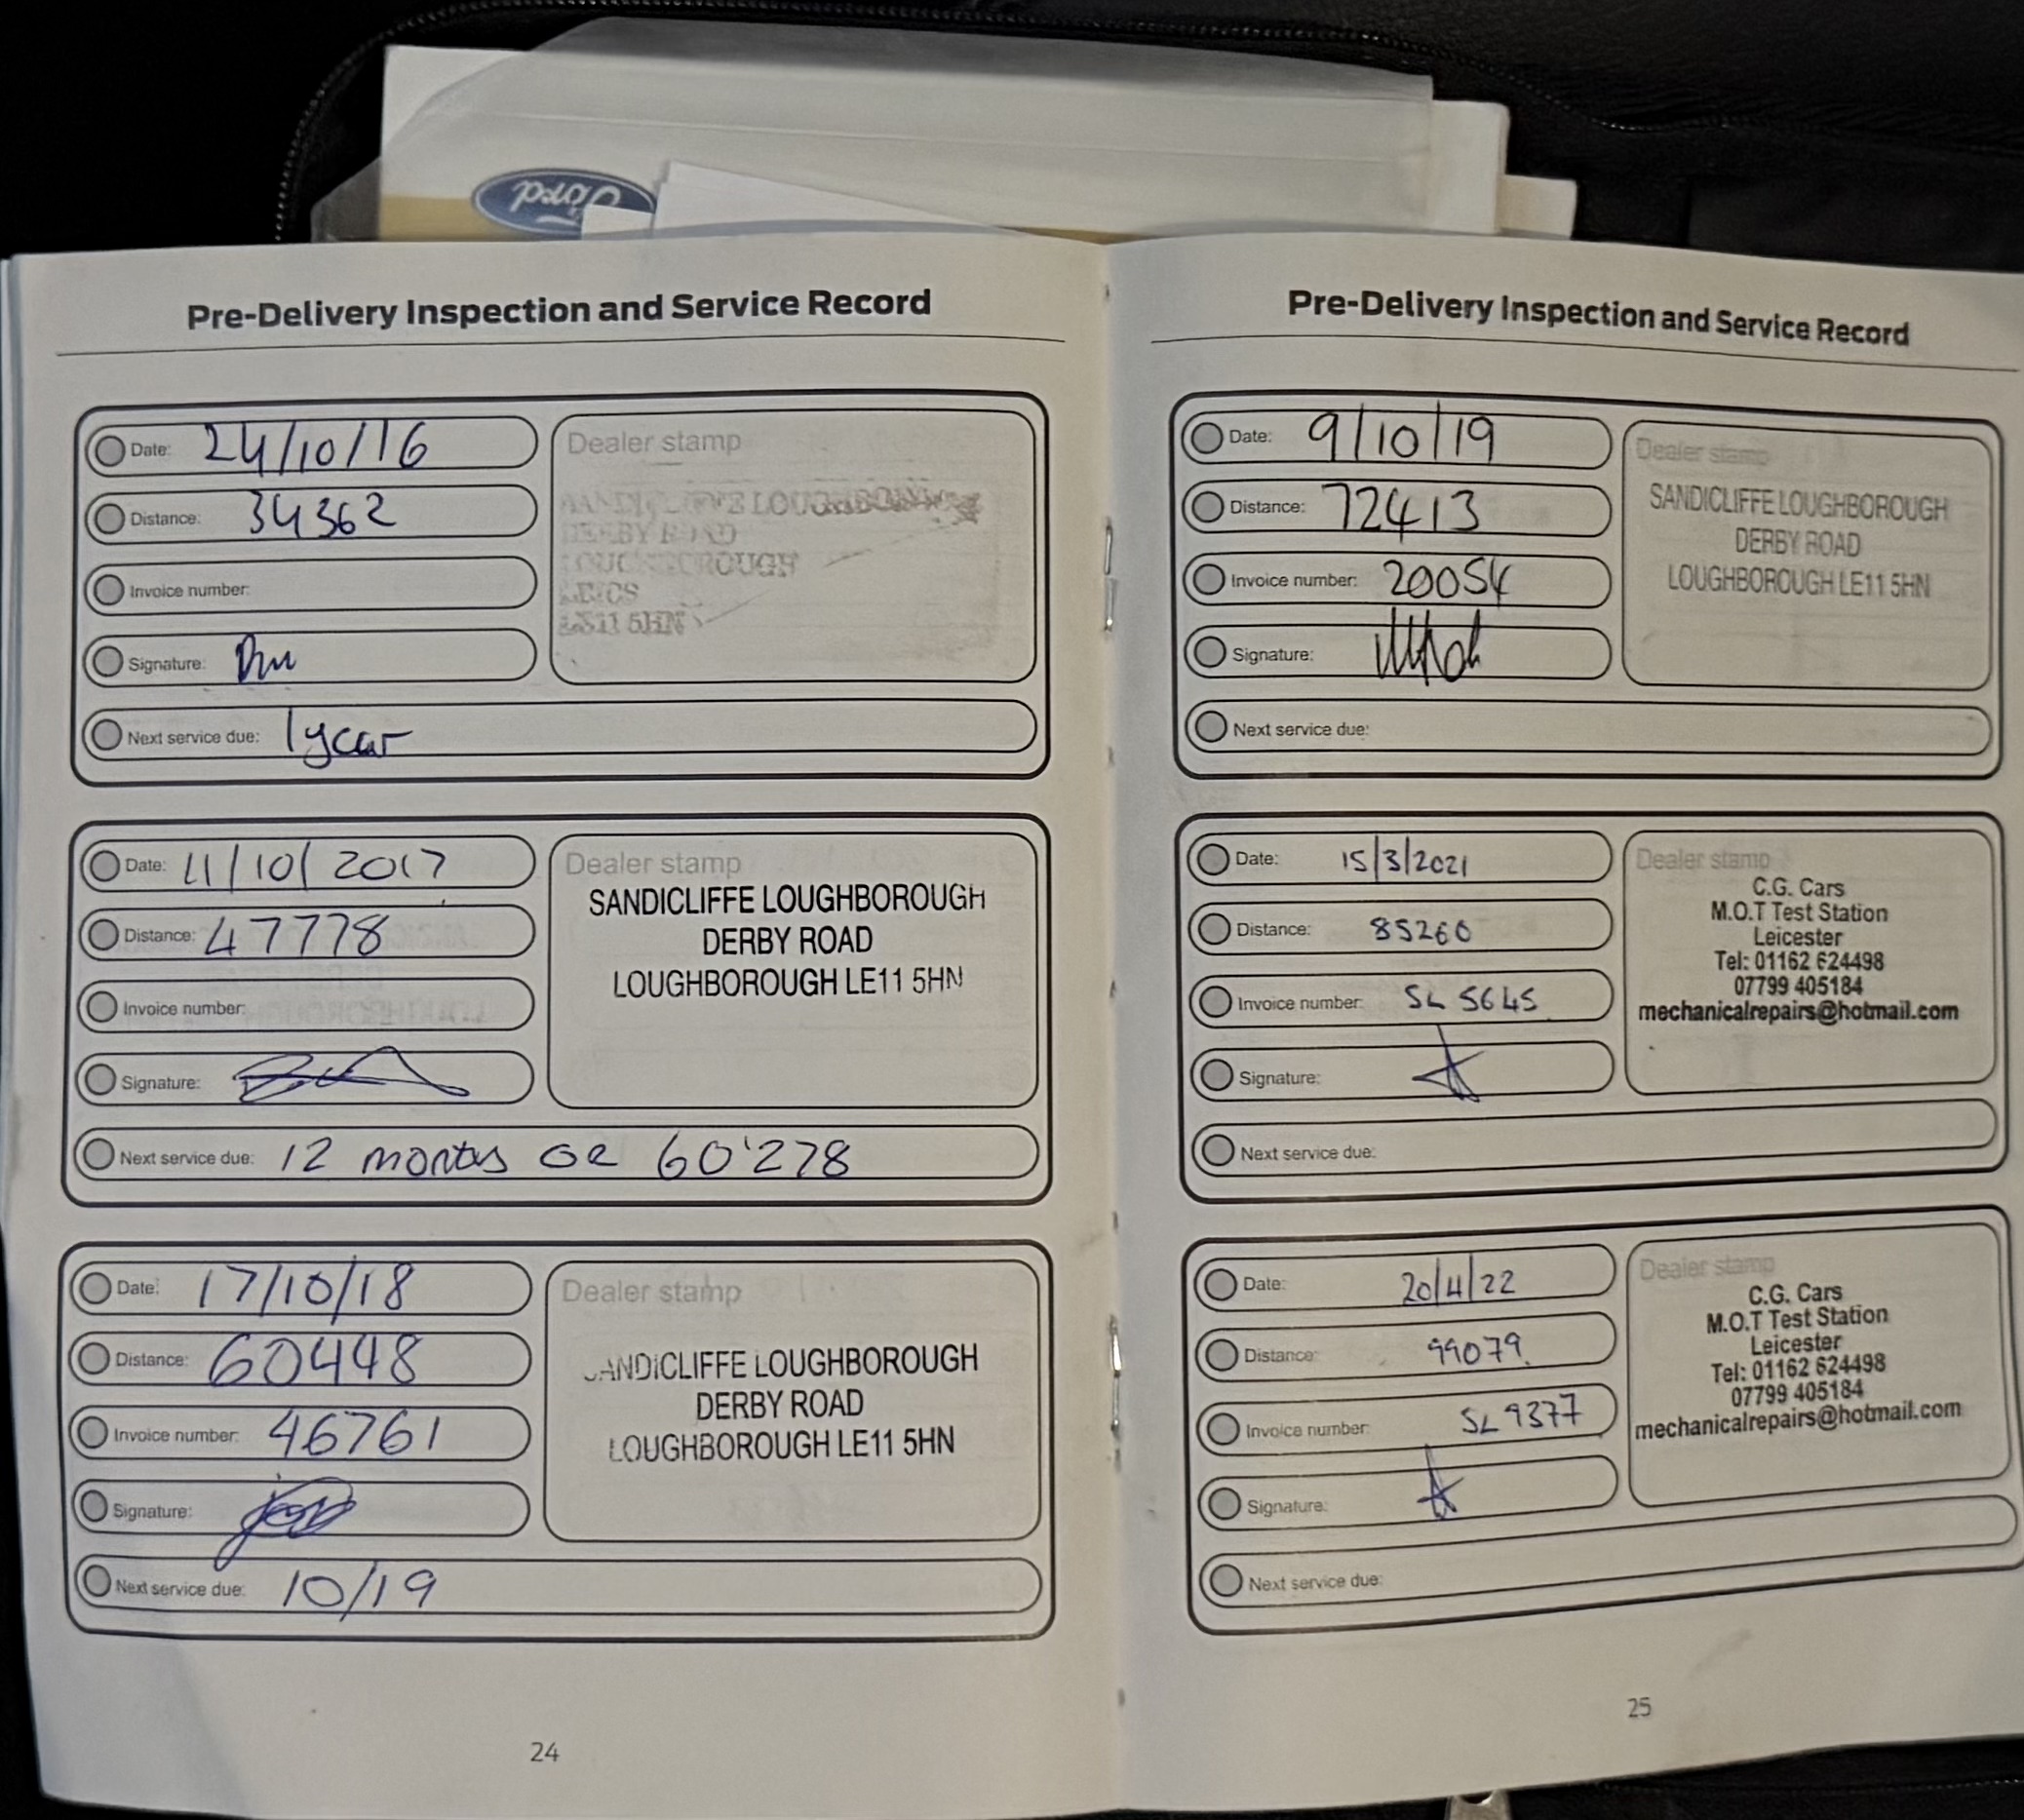 Ford
Pre-Delivery Inspection and Service Record
Date: 24/10/16
Distance: 34362
Invoice number:
Signature:
Next service due: 1 year
Dealer stamp
LOUGHBOROUGH
DERBY ROAD
LOUGHBOROUGH
LEICS
LE11 5HN
Date: 11/10/2017
Distance: 47778
Invoice number:
Signature:
Next service due: 12 months or 60'278
Dealer stamp
SANDICLIFFE LOUGHBOROUGH
DERBY ROAD
LOUGHBOROUGH LE11 5HN
Date: 17/10/18
Distance: 60448
Invoice number: 46761
Signature:
Next service due: 10/19
Dealer stamp
ANDICLIFFE LOUGHBOROUGH
DERBY ROAD
LOUGHBOROUGH LE11 5HN
24
Pre-Delivery Inspection and Service Record
Date: 9/10/19
Distance: 72413
Invoice number: 20054
Signature:
Next service due:
Dealer stamp
SANDICLIFFE LOUGHBOROUGH
DERBY ROAD
LOUGHBOROUGH LE11 5HN
Date: 15/3/2021
Distance: 85260
Invoice number: SL 5645
Signature:
Next service due:
Dealer stamp
C.G. Cars
M.O.T Test Station
Leicester
Tel: 01162 624498
07799 405184
mechanicalrepairs@hotmail.com
Date: 20/4/22
Distance: 99079
Invoice number: SL 9377
Signature:
Next service due:
Dealer stamp
C.G. Cars
M.O.T Test Station
Leicester
Tel: 01162 624498
07799 405184
mechanicalrepairs@hotmail.com
25